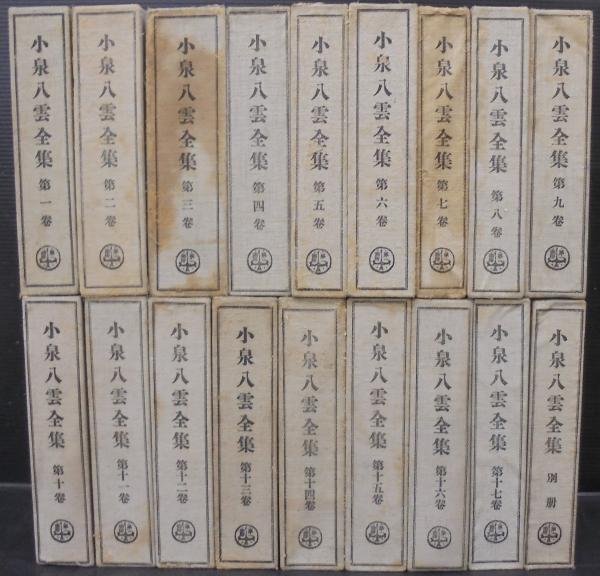 小泉八雲全集 第一卷
小泉八雲全集 第二卷
小泉八雲全集 第三卷
小泉八雲全集 第四卷
小泉八雲全集 第五卷
小泉八雲全集 第六卷
小泉八雲全集 第七卷
小泉八雲全集 第八卷
小泉八雲全集 第九卷
小泉八雲全集 第十卷
小泉八雲全集 第十一卷
小泉八雲全集 第十二卷
小泉八雲全集 第十三卷
小泉八雲全集 第十四卷
小泉八雲全集 第十五卷
小泉八雲全集 第十六卷
小泉八雲全集 第十七卷
小泉八雲全集 別册